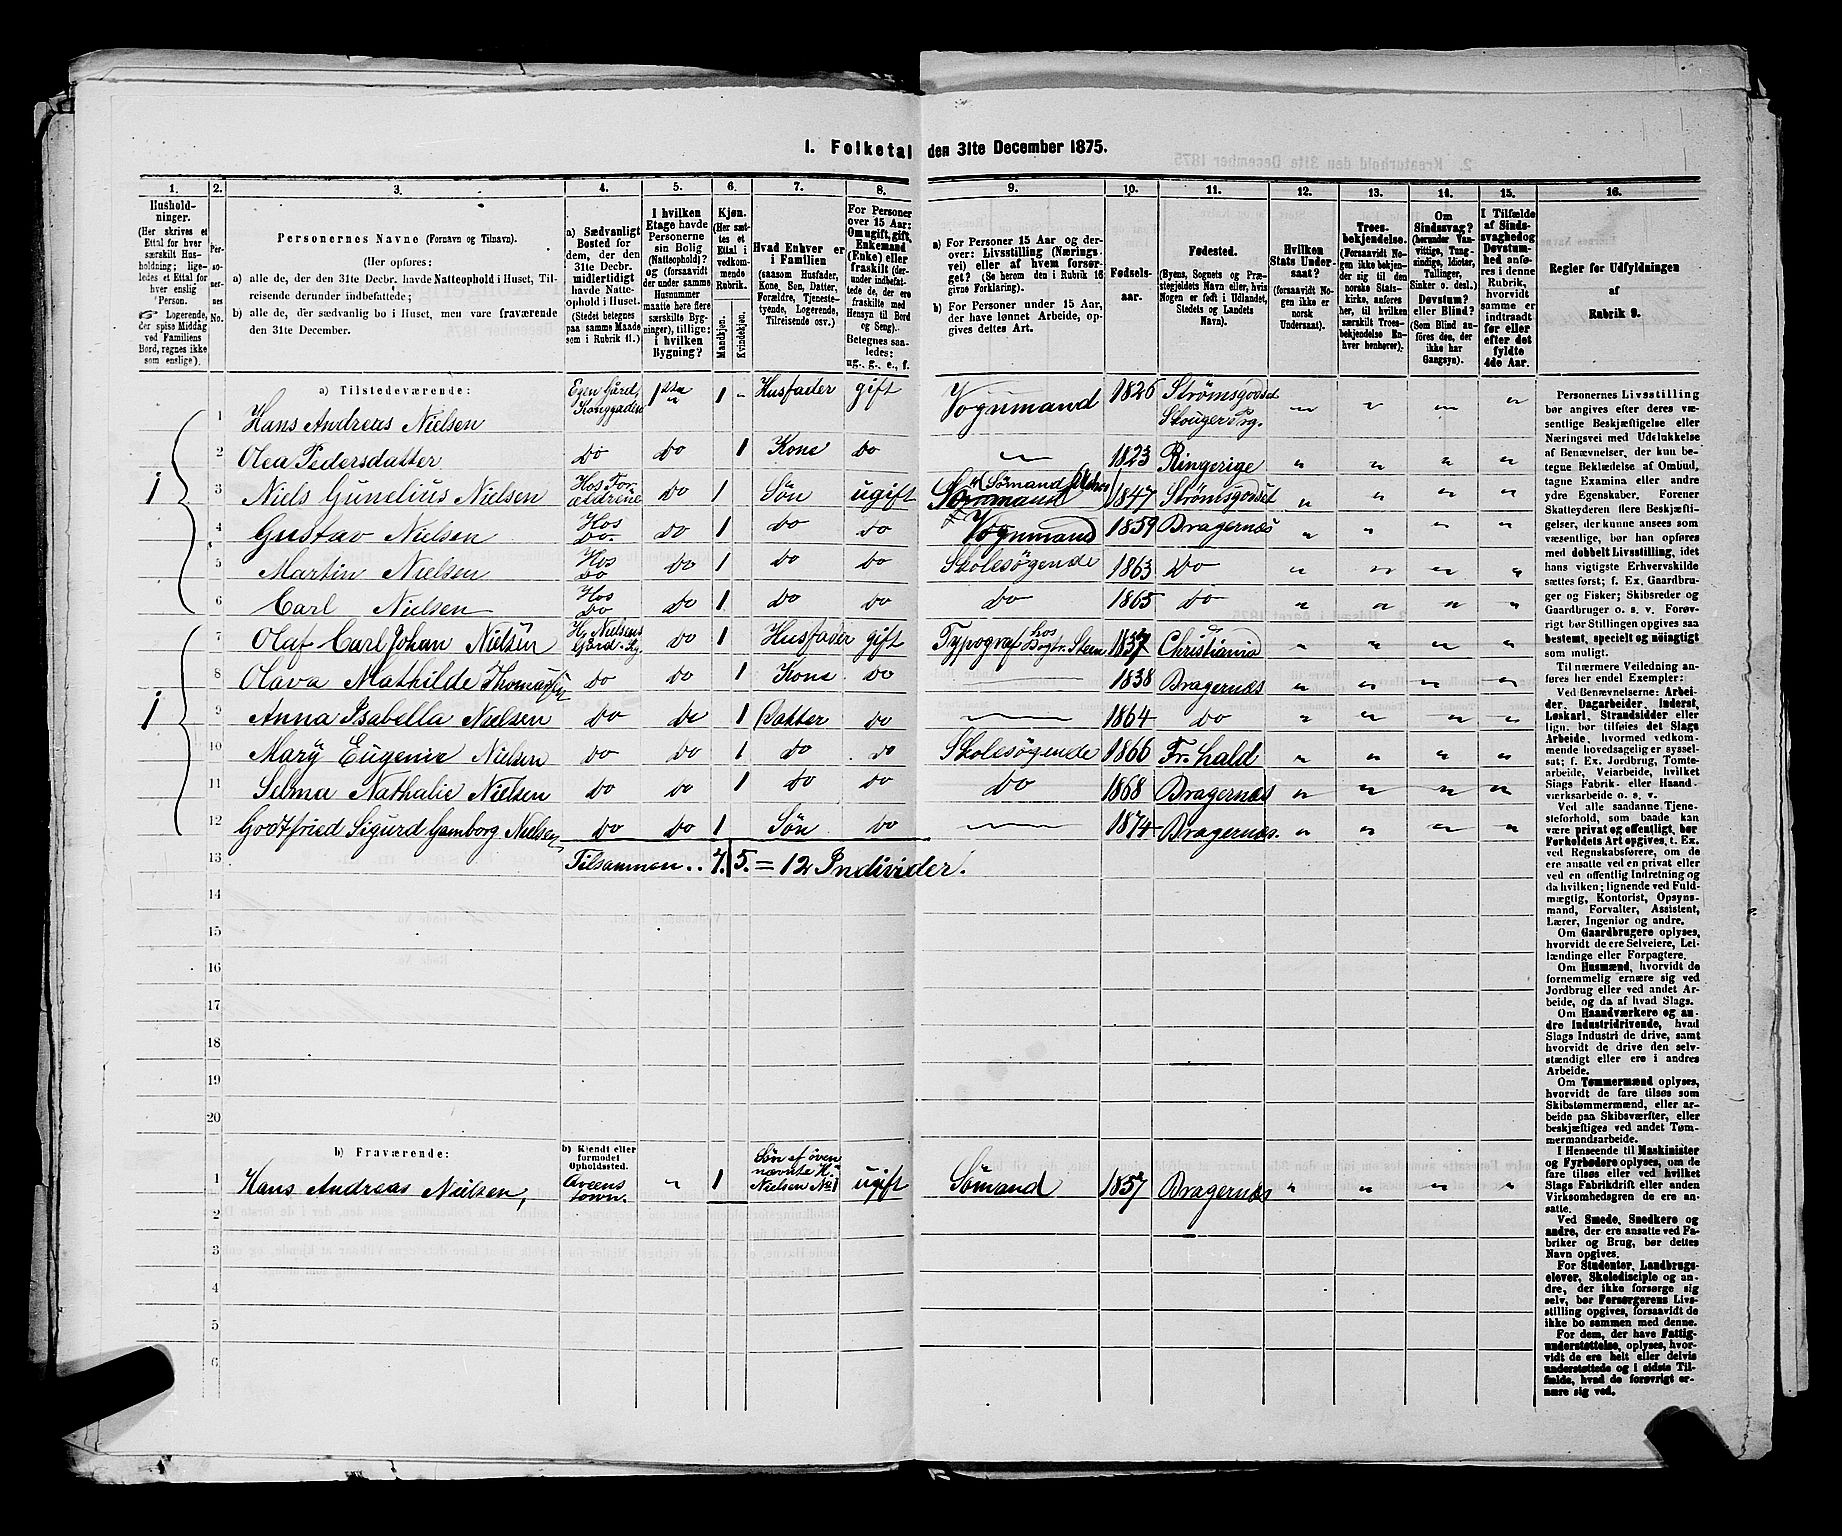 1. Folketal den 31te December 1875.
1. 2. 3. 4. 5. 6. 7. 8. 9. 10. 11. 12. 13. 14. 15. 16.
Husholdninger.
(Her skrives et
Ettal for hver
særskilt Husholdning;
ligeledes et Ettal for
hver enslig
Person.
Logerende,
der spise Middag
ved Familiens
Bord, regnes ikke
som enslige).
Personernes No.
Personernes Navne (Fornavn og Tilnavn).
(Her opføres:
a) alle de, der den 31te Decbr. havde Natteophold i Huset, Tilreisende derunder indbefattede;
b) alle de, der sædvanlig bo i Huset, men vare fraværende
den 31te December.
a) Sædvanligt
Bosted for
dem, der den
31te Decbr.
midlertidigt
havde Natteophold i Huset.
(Stedet betegnes
paa samme Maade
som i Rubrik 11.)
I hvilken
Etage havde
Personerne
sin Bolig
(Natteophold)?
og (forsaavidt
der under samme
Husnummer
maatte høre flere
særskilte Bygninger), tillige:
i hvilken
Bygning?
Kjøn.
(Her sættes et
Ettal i
vedkommende
Rubrik.
Mandkjøn.
Kvindekjøn.
Hvad Enhver er
i Familien
(saasom Husfader,
Kone, Søn, Datter,
Forældre, Tjenestetyende, Logerende,
Tilreisende osv.)
For Personer
over 15 Aar:
Om ugift, gift,
Enkemand
(Enke) eller
fraskilt (derunder indbefattede de, der ere
fraskilte med
Hensyn til Bord
og Seng).
Betegnes saaledes:
ug., g., e., f.
a) For Personer 15 Aar og derover: Livsstilling (Næringsvei) eller af hvem forsørget? (Se herom den i Rubrik 16
givne Forklaring).
b) For Personer under 15 Aar,
der have lønnet Arbeide, opgives dettes Art.
Fødselsaar.
Fødested.
(Byens, Sognets og Præstegjeldets Navn eller, hvis
Nogen er født i Udlandet,
Stedets og Landets
Navn).
Hvilken
Stats Undersaat?
(forsaavidt Nogen ikke er
norsk
Undersaat).
Troesbekjendelse.
(Forsaavidt Nogen ikke bekjender sig til den
norske Statskirke, anføres
her, til hvilken
særskilt Troesbekjendelse Enhver henhører).
Om
Sindssvag?
(herunder Vanvittige, Tungsindige, Idioter,
Tullinger,
Sinker o. desl.)
Døvstum?
eller Blind?
(Som Blind anføres den, der
ikke har
Gangsyn).
I Tilfælde
af Sindssvaghed og
Døvstumhed anføres i denne
Rubrik,
hvorvidt
samme er
indtraadt
før eller
efter det
fyldte
4de Aar.
Regler for Udfyldningen
af
Rubrik 9.
a) Tilstedeværende:
1 Hans Andreas Nielsen Egen Gård, Konggaden 1ste 1 Husfader gift Vognmand 1826 Strømsgodset Skouger Prg.
2 Olea Pedersdatter Do Do 1 Kone Do 1823 Ringerige
1 3 Niels Gunelius Nielsen Hos Forældrene Do 1 Søn ugift Sömand 1847 Strømsgodset
4 Gustav Nielsen Hos Do. Do 1 Do Do Vognmand 1859 Bragernæs
5 Martin Nielsen Hos Do Do 1 Do Do Skolesøgende 1863 Do
6 Carl Nielsen Hos Do Do 1 Do Do Do 1865 Do
7 Olaf Carl Johan Nielsen H. Nielsens Gård Do 1 Husfader gift Typograf hos Bogtr. Steen 1837 Christiania
8 Olava Mathilde Thomassen Do Do 1 Kone Do 1838 Bragernæs
1 9 Anna Isabella Nielsen Do Do 1 Datter Do 1864 Do
10 Mary Eugenie Nielsen Do Do 1 Do Do Skolesøgende 1866 Fr. hald
11 Selma Nathalie Nielsen Do Do 1 Do Do Do 1868 Bragernæs
12 Godtfried Sigurd Gamborg Nielsen Do Do 1 Søn Do 1874 Bragernæs.
13 Tilsammen.. 7. 5. = 12 Individer.
14
15
16
17
18
19
20
b) Fraværende:
b) Kjendt eller
formodet
Opholdssted.
1 Hans Andreas Nielsen, Qveenstown. 1 Søn af ovennævnte H. Nielsen No 1 ugift Sömand 1857 Bragernæs
2
3
4
5
6
Personernes Livsstilling
bør angives efter deres væsentlige Beskjæftigelse eller
Næringsvei med Udelukkelse
af Benævnelser, der kun betegne Beklædelse af Ombud,
tagne Examina eller andre
ydre Egenskaber. Forener
Skatteyderen flere Beskjæftigelser, der kunne ansees som
væsentlige, bør han opføres
med dobbelt Livsstilling, idet
hans vigtigste Erhvervskilde
sættes først; f. Ex. Gaardbruger og Fisker; Skibsreder og
Gaardbruger o. s. v. Forøvrigt bør Stillingen opgives saa
bestemt, specielt og nøiagtigt
som muligt.
Til nærmere Veiledning anføres her endel Exempler:
Ved Benævnelserne: Arbeider, Dagarbeider, Inderst,
Løskarl, Strandsidder eller
lign. bør tilføies det Slags
Arbeide, hvormed vedkommende hovedsagelig er sysselsat; f. Ex. Jordbrug, Tomtearbeide, Veiarbeide, hvilket
Slags Fabrik- eller Haandværksarbeide o. s. v.
Ved alle saadanne Tjenesteforhold, som baade kan
være privat og offentligt, bør
Forholdets Art opgives, t. Ex.
ved Regnskabsførere, om de
ere ansatte ved en privat eller
ved en offentlig Indretning og
da hvilken; lignende ved Fuldmægtig, Kontorist, Opsynsmand, Forvalter, Assistent,
Lærer, Ingeniør og andre.
Om Gaardbrugere oplyses,
hvorvidt de ere Selveiere, Leilændinge eller Forpagtere.
Om Husmænd, hvorvidt de
fornemmelig ernære sig ved
Jordbrug eller ved andet Arbeide, og da af hvad Slags.
Om Haandværkere og andre Industridrivende, hvad
Slags Industri de drive, samt
hvorvidt de drive den selvstændigt eller ere i andres
Arbeide.
Om Tømmermænd oplyses,
hvorvidt de fare tilsøs som
Skibstømmermænd, eller arbeide paa Skibsværfter, eller
beskjæftiges ved andet Tømmermandsarbeide.
I Henseende til Maskinister
og Fyrbødere oplyses, om de
fare tilsøs eller ved hvilket
Slags Fabrikdrift eller anden
Virksomhedsgren de ere ansatte.
Ved Smede, Snedkere og
andre, der ere ansatte ved Fabriker og Brug, bør dettes
Navn opgives.
For Studenter, Landbrugselever, Skoledisciple og andre, der ikke forsørge sig
selv, bør Forsørgerens Livsstilling opgives, forsaavidt de
ikke bo sammen med denne.
For dem, der have Fattigunderstøttelse, oplyses, hvorvidt de ere helt eller delvis
understøttede og i sidste Tilfælde, hvad de forøvrigt ernære sig ved.